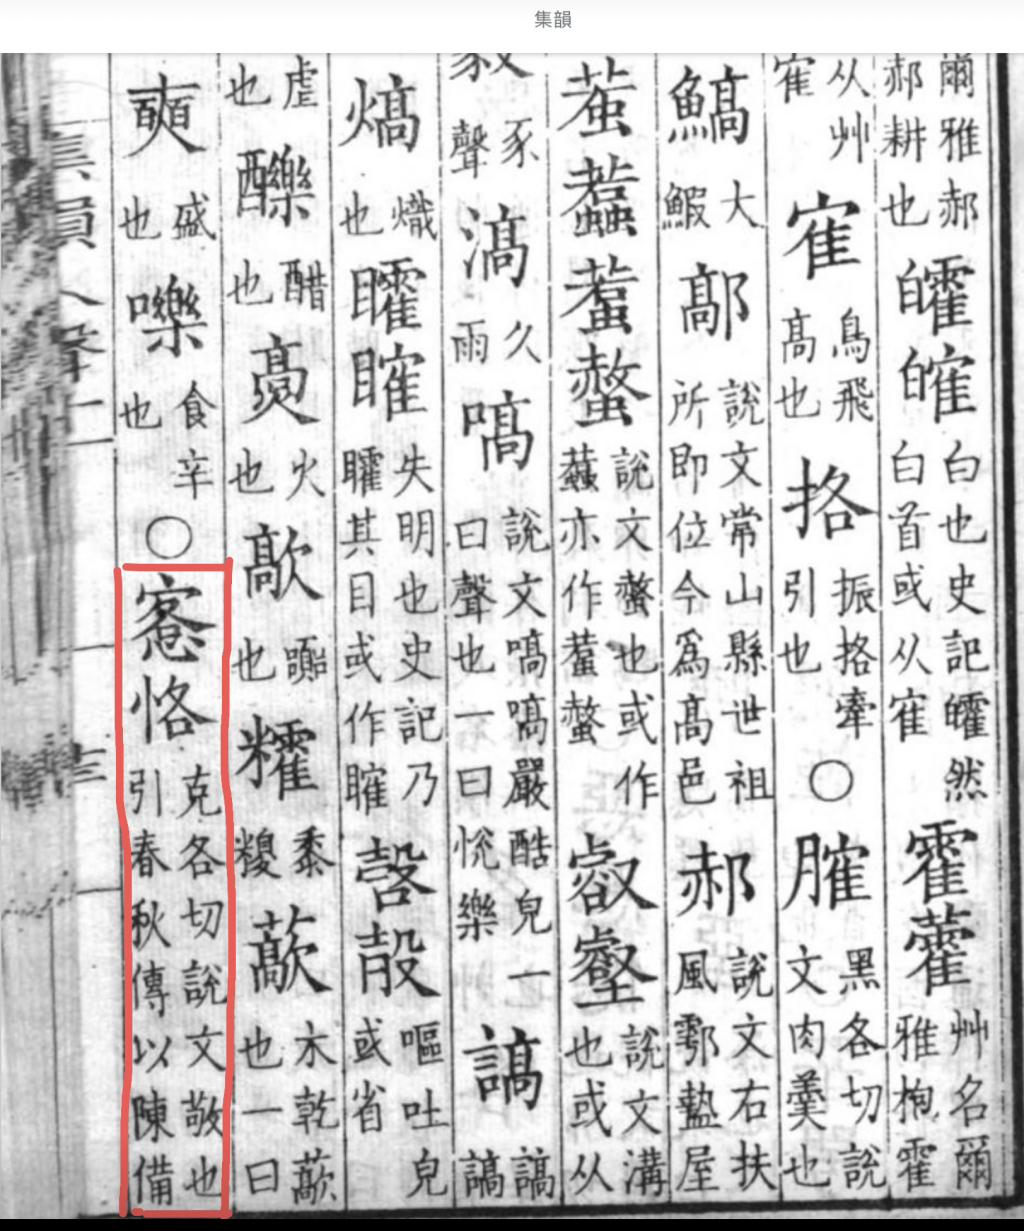 集韻
爾雅郝郝耕也皬白也史記皬然白首或从隺霍藿艸名爾雅栒霍
从艸隺隺鳥飛高也挌振挌牽引也○𦞦黑各切說文肉羹也
鰝大鰕鄗說文常山縣世祖所即位今爲高邑郝說文右扶風鄠盩屋
蠚螫說文螫也或作亦作螫叡壑說文溝也或从
豕聲滈久雨嗃說文嗃嗃嚴酷皃一曰聲也一曰悅樂謞謞謞
熇熾也矐失明也史記乃矐其目或作嘔吐皃或省
虐也醋也火也歊也黍木乾也一曰
奭盛也嚛食辛也○愙恪克各切說文敬也引春秋傳以陳備